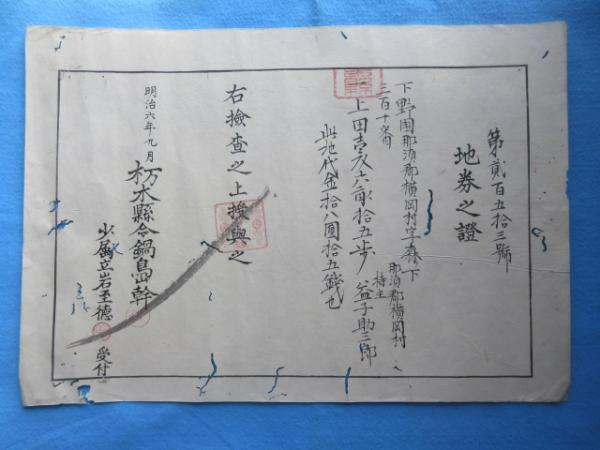 第貳百五拾三號
地券之證
下野国那須郡横岡村字森下
三百十六番
一上田壹反六畝拾五歩
那須郡横岡村
持主
益子助三郎
此地代金拾八圓拾五錢也
右撿查之上授與之
明治六年九月
栃木縣令鍋島幹
少属立岩至徳
受付